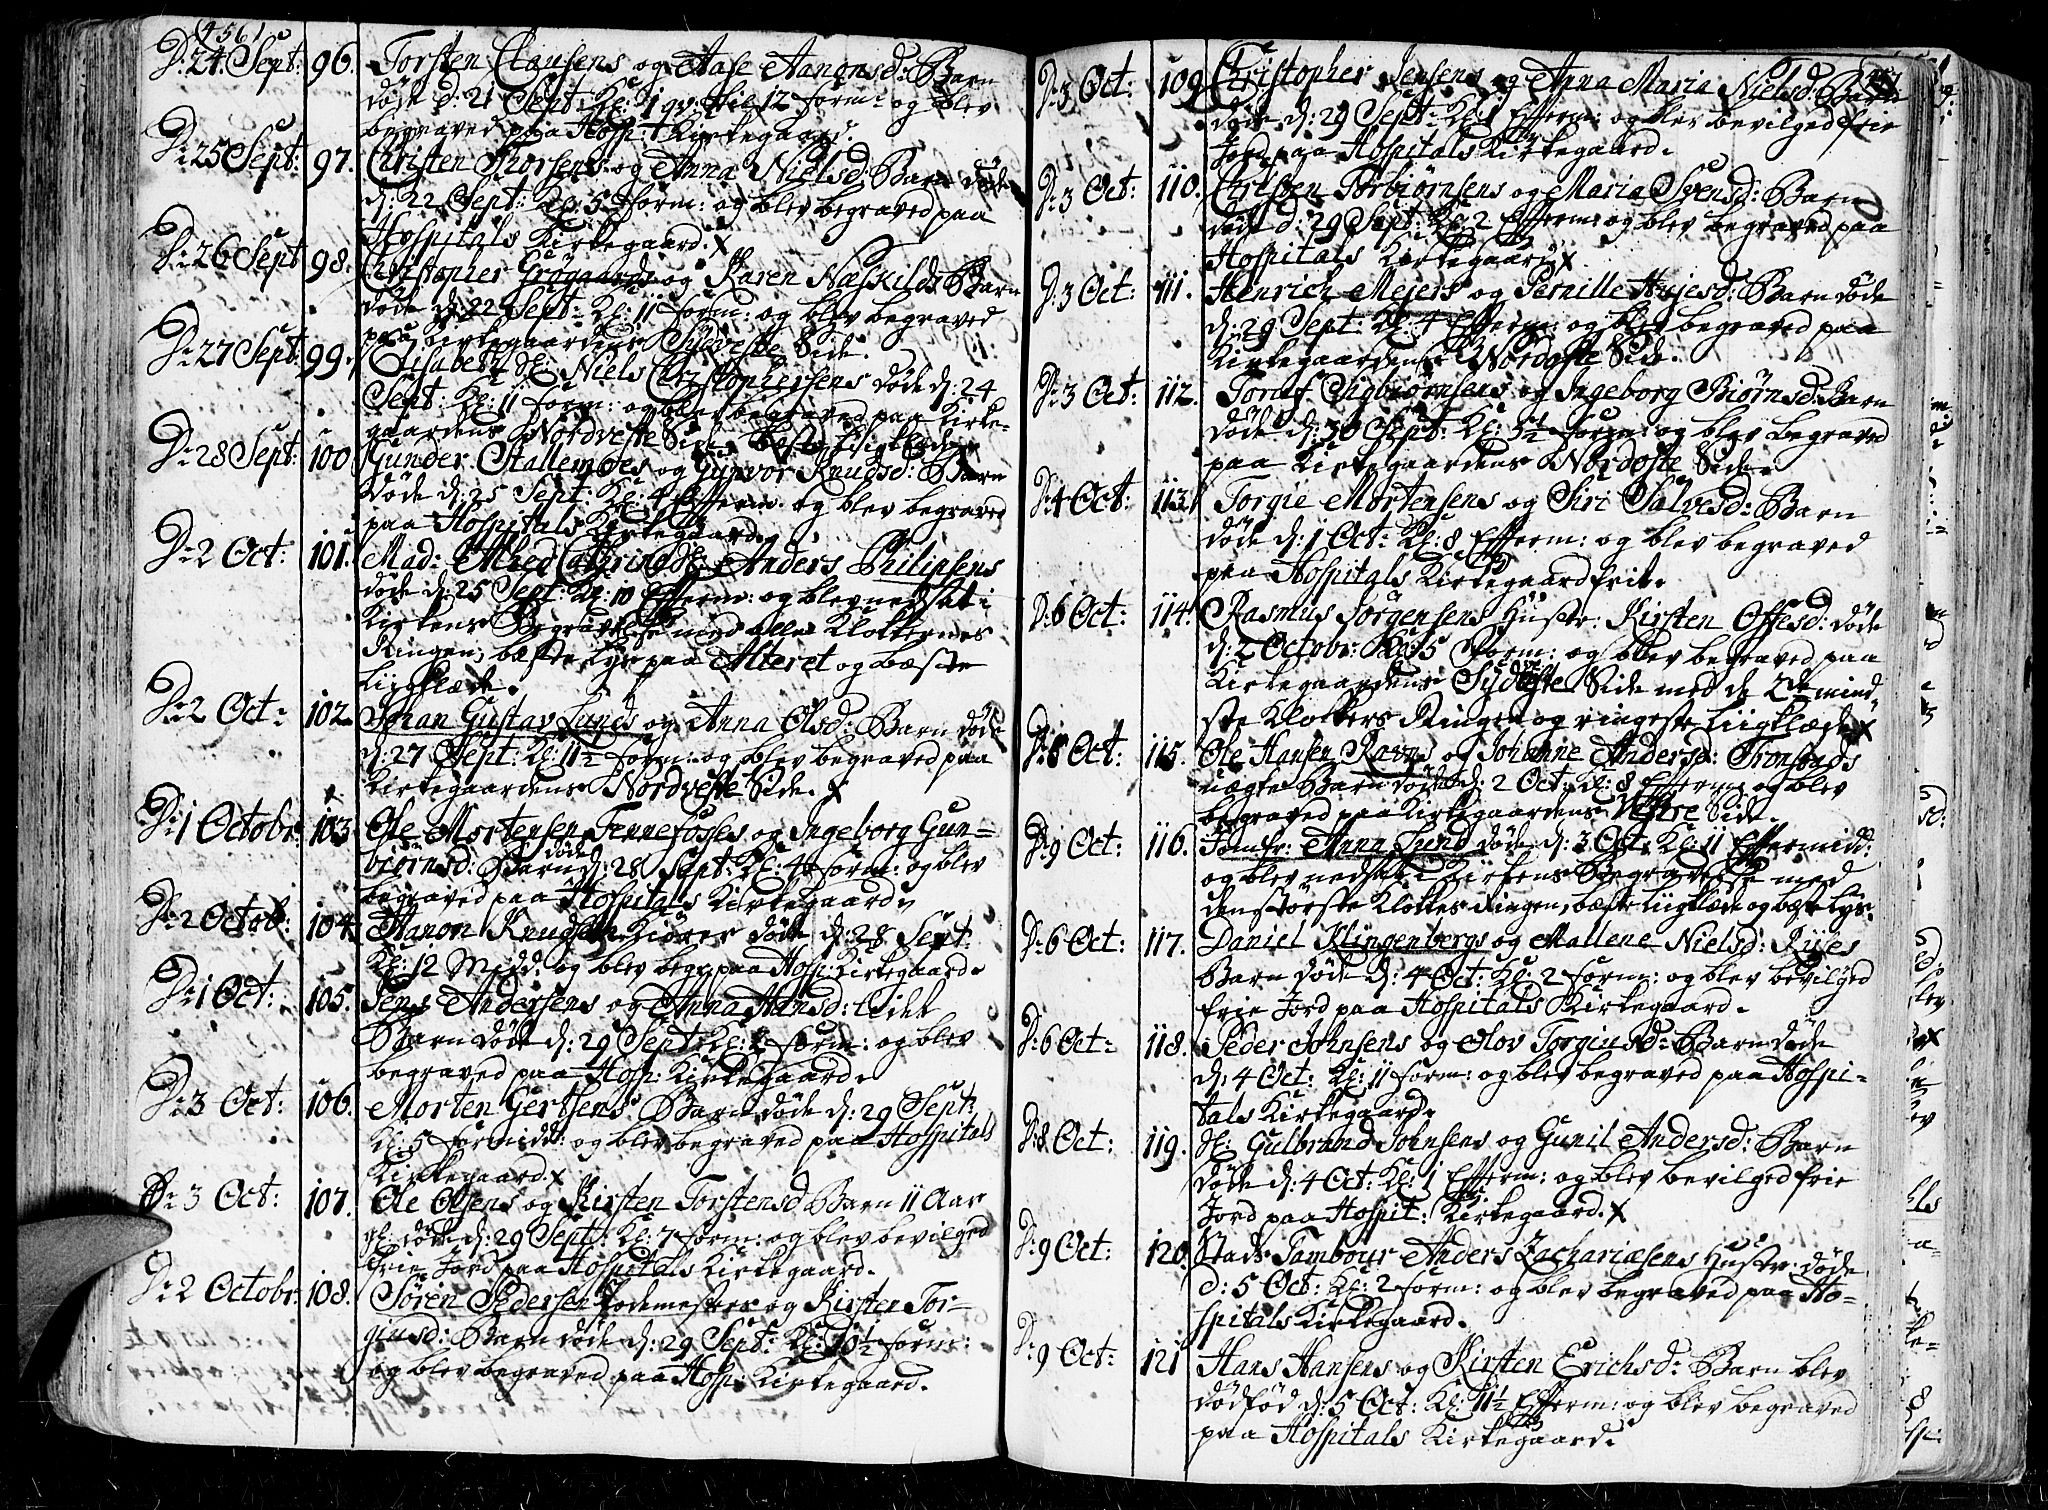 (456)
D: 24 Sept: 96. Torsten Clausens og Aase Aanonsd: Barn
døde d: 21 Sept: Kl: 1 qv: til 12 form: og blev
begraved paa Hosp: Kirkegaard.
D: 25 Sept: 97. Christen Thorsens og Anna Nielsd: Barn døde
d: 22 Sept: Kl: 5 form: og blev begraved paa
Hospitals Kirkegaard. X
D: 26 Sept 98. Christopher Grögaards og Karen Næskilds Barn
døde d: 22 Sept: Kl: 11 form: og blev begraved
paa Kirkegaardens Sydveste Side.
D: 27 Sept: 99. Elisabeth Sl: Niels Christophersens døde d: 24
Sept: Kl: 11 form: og blev begraved paa Kirke-
gaardens Nordveste Side, bæste Ligklæde.
D: 28 Sept: 100 Gunder Stallemoes og Gunvor Knudsd: Barn
døde d: 25 Sept: Kl: 4 Efterm: og blev begraved
paa Hospitals Kirkegaard.
D: 2 Oct: 101. Mad: Alhed Cathrine Sl: Anders Philipsens
døde d: 25 Sept: Kl: 10 Efterm: og blev nedsat i
Kirkens Begravelse med alle Klokkernes
Ringen, bæste Lys paa Alteret og bæste
Liigklæde.
D: 2 Oct: 102. Johan Gustav Lunds og Anna Olsd: Barn døde
d: 27 Sept: Kl: 11½ form: og blev begraved paa
Kirkegaardens Nordveste Side. X
D: 1 Octobr: 103 Ole Mortensen Tennefosses og Ingeborg Gun-
biørnsd: Barn døde d: 28 Sept: Kl: 4 form: og blev
begraved paa Hospitals Kirkegaard.
D: 2 Octob: 104. Aanon Knudsen Kiöres døde d: 28 Sept:
Kl: 12 Midd: og blev begr: paa Hosp: Kirkegaard.
D: 1 Oct: 105. Jens Andersens og Anna Hansd: lidet
Barn døde d: 29 Sept: Kl: 2 form: og blev
begraved paa Hosp: Kirkegaard.
D: 3 Oct: 106. Morten Gertsens Barn døde d: 29 Sept:
Kl: 5 formidd: og blev begraved paa Hospitals
Kirkegaard. X
D: 3 Oct: 107. Ole Olsens og Kirsten Torstensd Barn 11 Aar
gl: døde d: 29 Sept: Kl: 7 form: og blev bevilged
frie Jord paa Hospitals Kirkegaard.
D: 2 Octobr: 108. Sören Pedersen Rodemesters og Kirsten Tor-
giusd: Barn døde d: 29 Sept: Kl: 10½ form:
og blev begraved paa Hosp: Kirkegaard.
D: 3 Oct: 109 Christopher Jensens og Anna Maria Nielsd: Barn
døde d: 29 Sept: Kl: 1 Efterm: og blev bevilged frie
Jord paa Hospitals Kirkegaard.
D: 3 Oct: 110. Christen Torbiørnsens og Maria Svensd: Barn
døde d: 29 Sept: Kl: 2 Efterm: og blev begraved paa
Hospitals Kirkegaard. X
D: 3 Oct: 111. Henrich Mejers og Pernille Hujesd: Barn døde
d: 29 Sept: Kl: 4 Efterm: og blev begraved paa
Kirkegaardens Nordoste Side.
D: 3 Oct: 112. Tomas Sigbiørnsens og Ingeborg Biørnsd: Barn
døde d: 30 Sept: Kl: 5½ form: og blev begraved
paa Kirkegaardens Nordoste Side.
D: 4 Oct: 113. Torgie Mortensens og Siri Salvesd: Barn
døde d: 1 Oct: Kl: 8 Efterm: og blev begraved
paa Hospitals Kirkegaard frit.
D: 6 Oct: 114. Rasmus Jörgensens Hustr: Kirsten Offesd: døde
d: 2 Octobr: Kl: 5 form: og blev begraved paa
Kirkegaardens Sydoste Side med de 2de mind
ste Klokkers Ringen og ringeste Liigklæde. X
D: 8 Oct: 115. Ole Hansen Ravns og Johanne Andersd: Tronstads
uægte Barn døde d: 2 Oct: Kl: 8 Efterm: og blev
begraved paa Kirkegaardens Vestre Side.
D: 9 Oct: 116. Jomfr: Anna Lund døde d: 3 Oct: Kl: 11 Eftermidd:
og blev nedsat i Kirkens Begravelse med
den störste Klokkes Ringen, bæste Liigklæde og bæste Lys.
D: 6 Oct: 117. Daniel Klingenbergs og Mallene Nielsd: Rijes
Barn døde d: 4 Oct: Kl: 2 form: og blev bevilged
frie Jord paa Hospitals Kirkegaard.
D: 6 Oct: 118. Peder Johnsens og Olov Torgiusd: Barn døde
d: 4 Oct: Kl: 11 form: og blev begraved paa Hospi-
tals Kirkegaard.
D: 8 Oct: 119. Sl: Gulbrand Johnsens og Gunil Andersd: Barn
døde d: 4 Oct: Kl: 1 Efterm: og blev bevilged frie
Jord paa Hospit: Kirkegaard. X
D: 9 Oct: 120. Stads Tambour Anders Zachariæsens Hustr: døde
d: 5 Oct: Kl: 2 form: og blev begraved paa Ho-
spitals Kirkegaard.
D: 9 Oct: 121 Hans Hansens og Kirsten Erichsd: Barn blev
dødfød d: 5 Oct: Kl: 11½ Efterm: og blev begraved
paa Hospitals Kirkegaard.